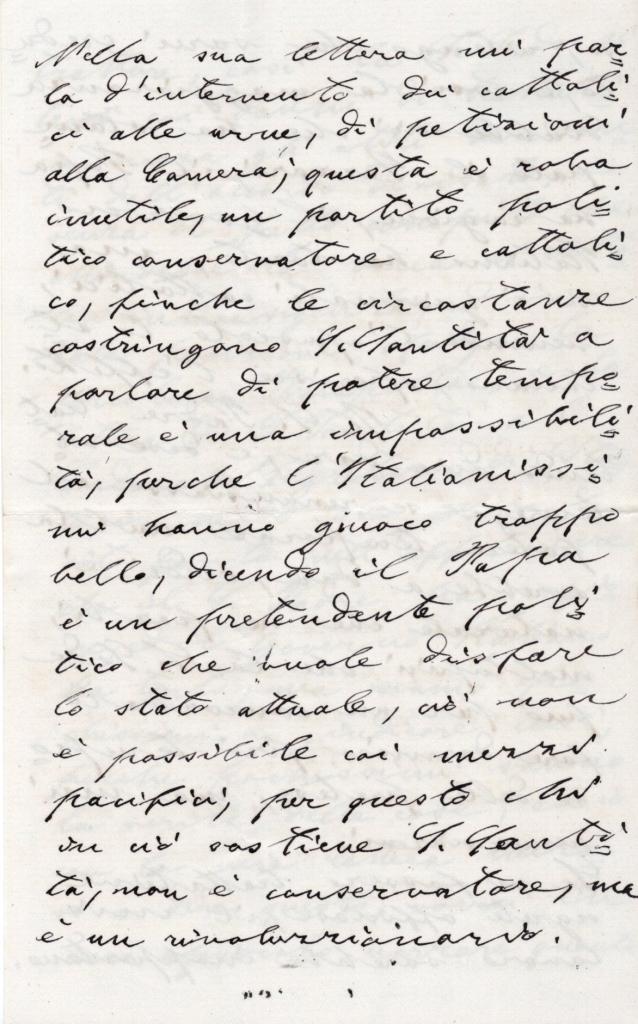 Nella sua lettera mi par=
la d'intervento dei cattoli=
ci alle urne, di petizioni
alla Camera; questa è roba
inutile, un partito poli=
tico conservatore e cattoli=
co, finche le circostanze
costringono S. Santità a
parlare di potere tempo=
rale è una impossibili=
tà, perche l'Italianissi=
mi hanno giuoco troppo
bello, dicendo il Papa
è un pretendente poli=
tico che vuole disfare
lo stato attuale, ciò non
è possibile coi mezzi
pacifici, per questo chi
in ciò sostiene S. Santi=
tà, non è conservatore, ma
è un rivoluzzionario.